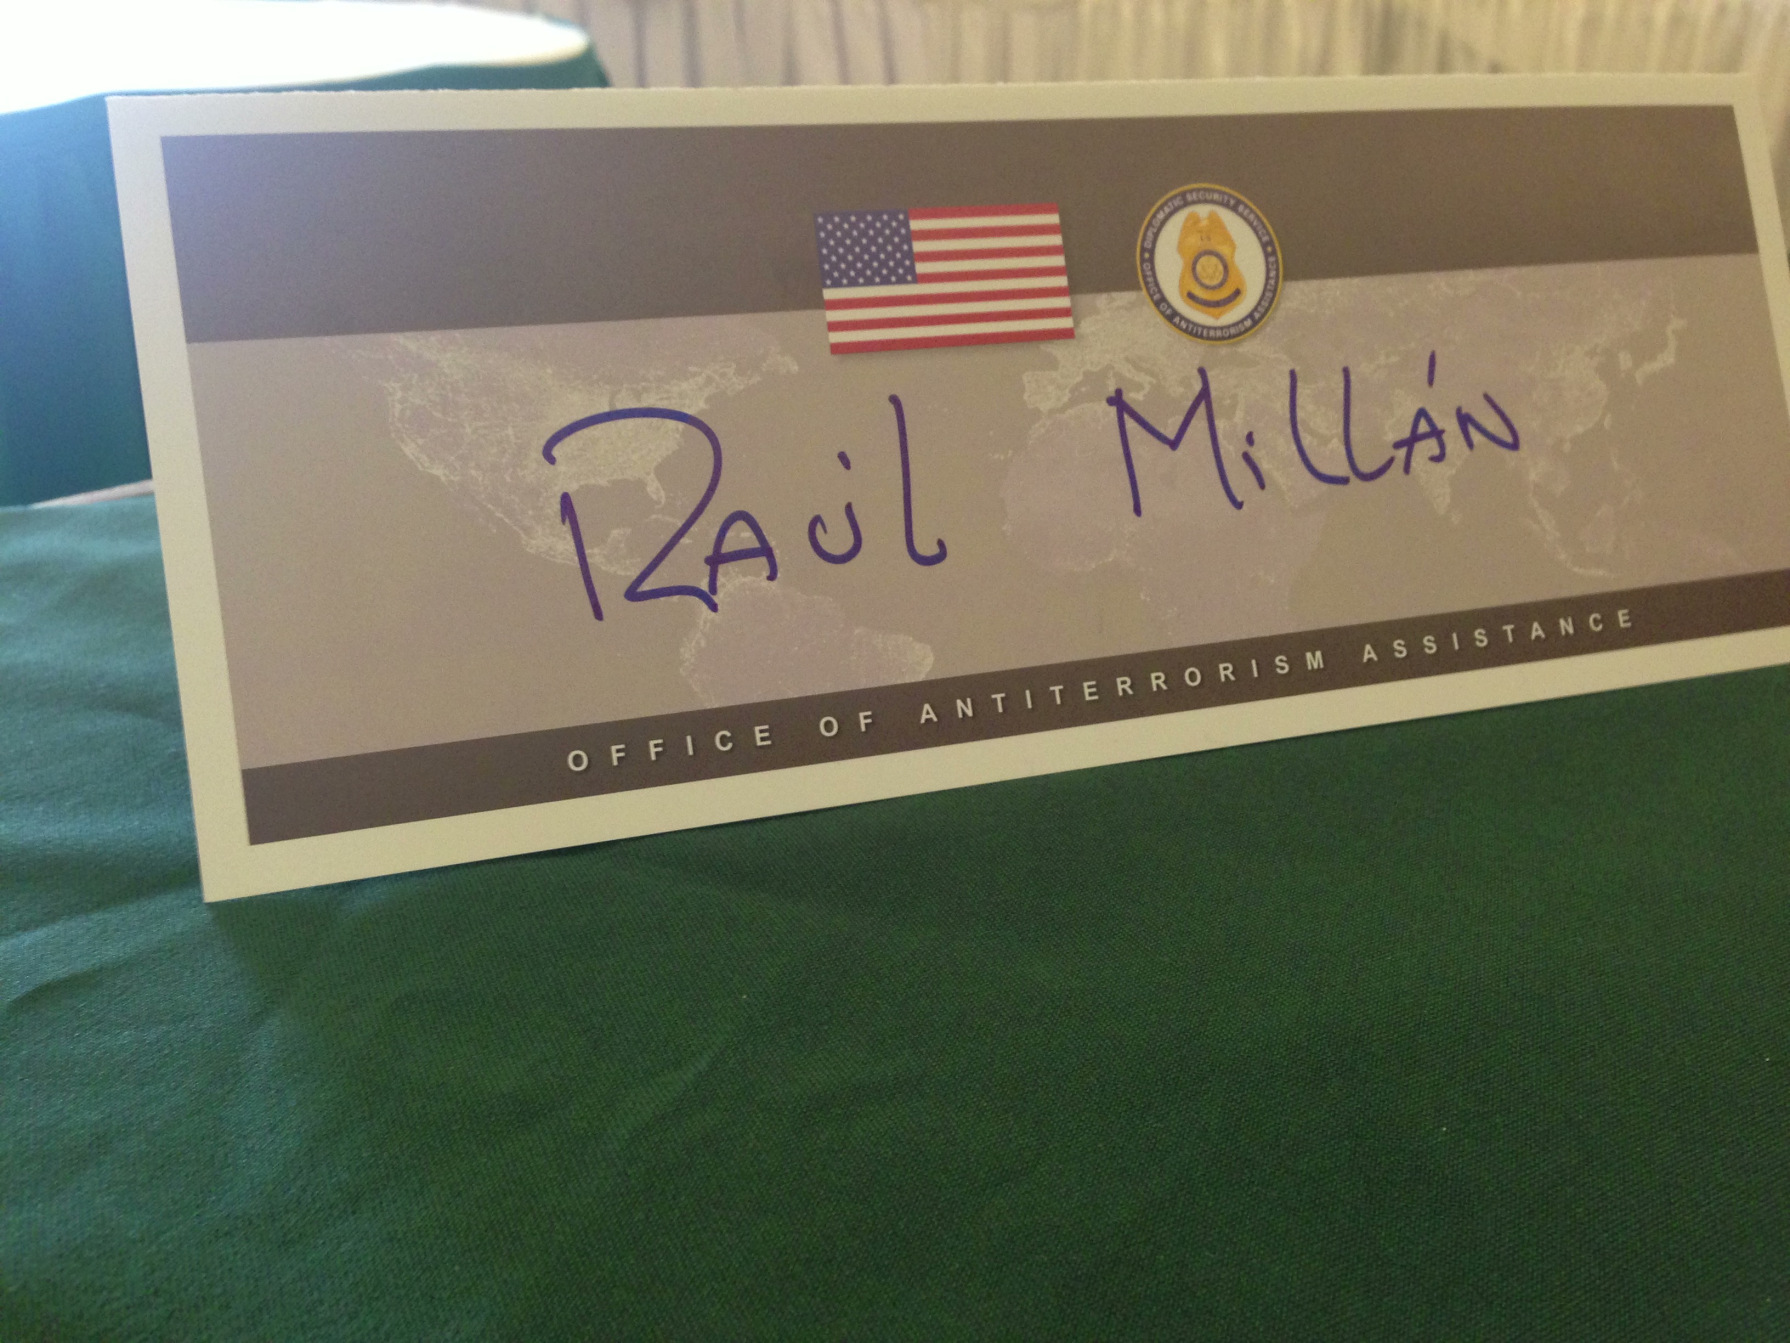 DIPLOMATIC SECURITY SERVICE
OFFICE OF ANTITERRORISM ASSISTANCE
RAÚL MiLLÁN
OFFICE OF ANTITERRORISM ASSISTANCE